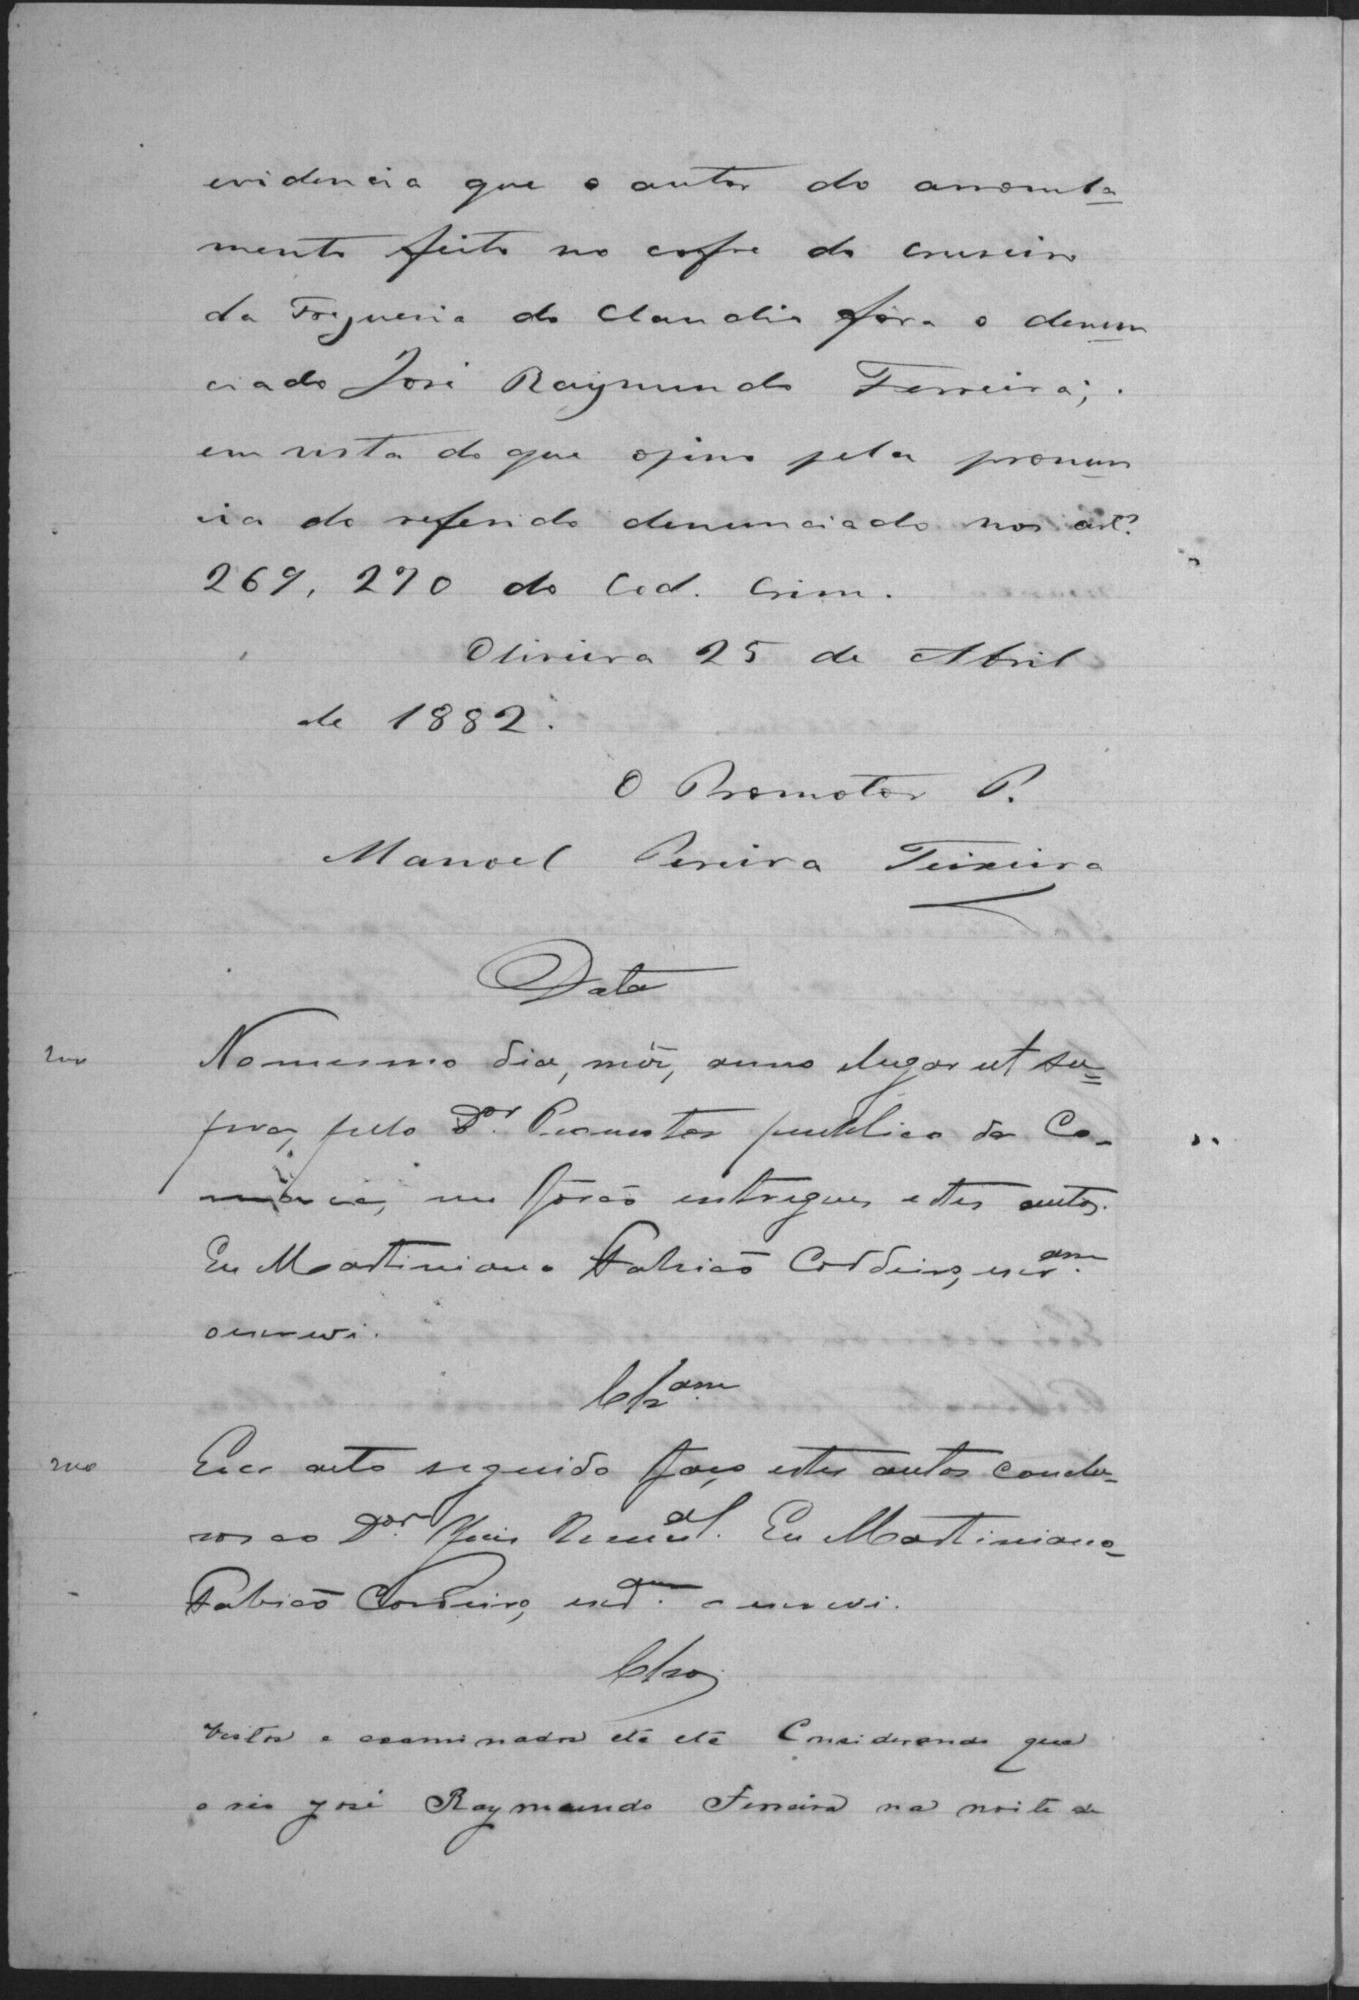 evidencia que o autor do arromba
mento feito no cofre do cruseiro
da Freguesia do Claudio fôra o denun
ciado José Raymundo Ferreira;
em vista do que opino pela pronun
cia do referido denunciado nos art.os
269, 270 do Cod. Crim.
Oliveira 25 de Abril
de 1882.
O Promotor P.
Manoel Pereira Teixeira
Data
200 No mesmo dia, mês, anno e lugar ut su=
pra, pelo Dor. Promotor publico da Co-
marca, me forão entregues estes autos.
Eu Martiniano Fabrició Cordeiro, escr.am
o escrevi.
Clz.am
200 E em acto seguido faço estes autos conclu-
sos ao Dor. Juis Munal. Eu Martiniano
Fabrició Cordeiro, escr.am o escrevi.
Clzo
Vistos e examinados etc etc Considerando que
o réo José Raymundo Ferreira na noite de